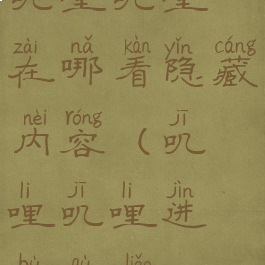 zài nǎ kàn yǐn cáng
在哪看隐藏
nèi róng jī
内容（叽
li jī li jìn
哩叽哩进